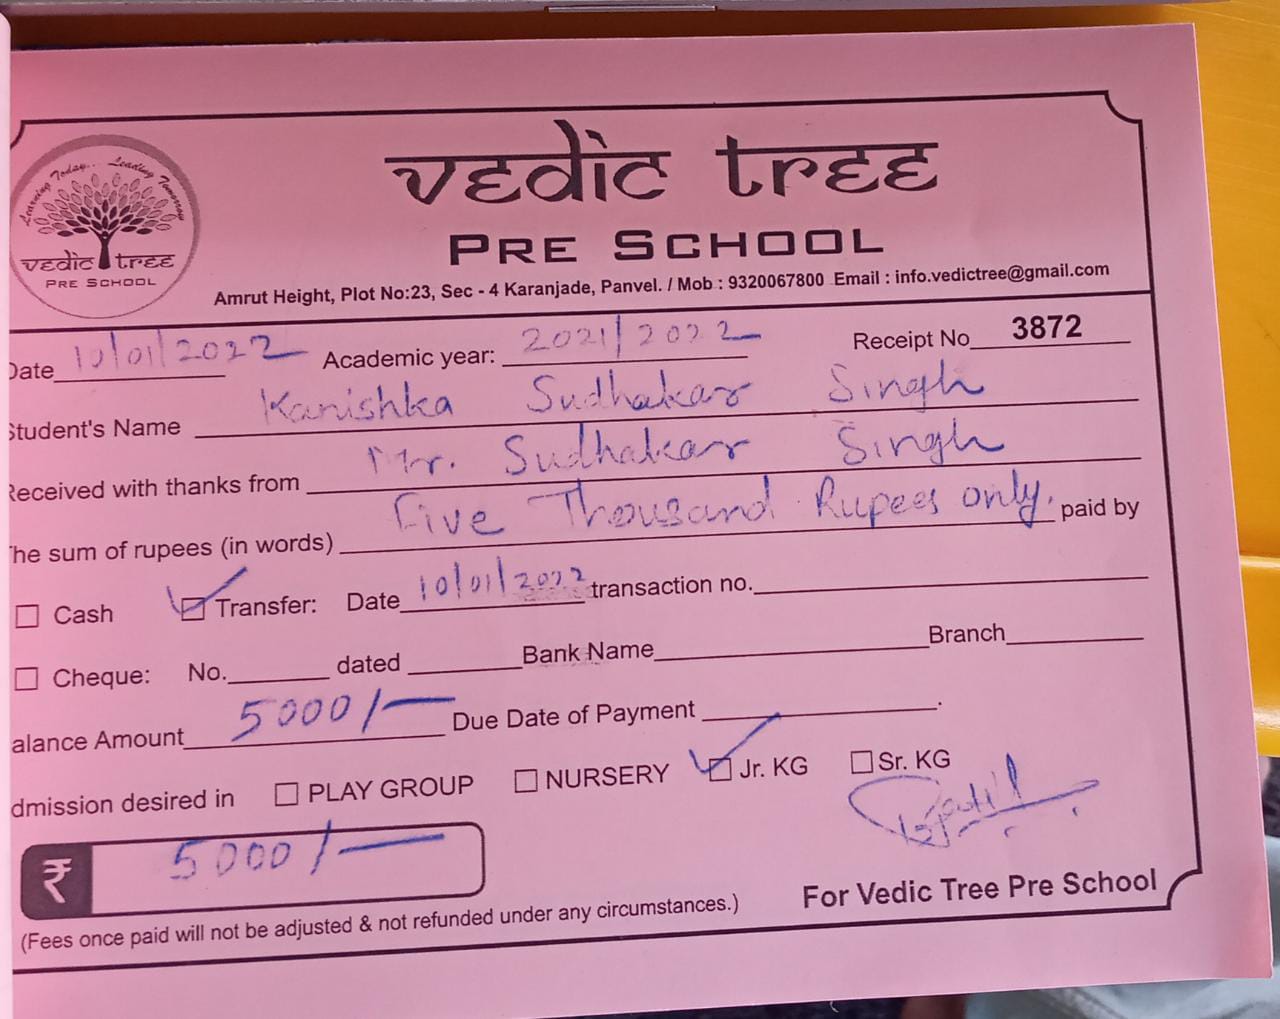 Learning Today... Leading Tomorrow
vedic tree
PRE SCHOOL
vedic tree
PRE SCHOOL
Amrut Height, Plot No:23, Sec - 4 Karanjade, Panvel. / Mob : 9320067800 Email : info.vedictree@gmail.com
Date 10/01/2022 Academic year: 2021/2022 Receipt No 3872
Student's Name Kanishka Sudhakar Singh
Received with thanks from Mr. Sudhakar Singh
The sum of rupees (in words) Five Thousand Rupees only. paid by
Cash Transfer: Date 10/01/2022 transaction no.
Cheque: No. dated Bank Name Branch
alance Amount 5000/- Due Date of Payment .
dmission desired in PLAY GROUP NURSERY Jr. KG Sr. KG
₹ 5000/-
For Vedic Tree Pre School
(Fees once paid will not be adjusted & not refunded under any circumstances.)